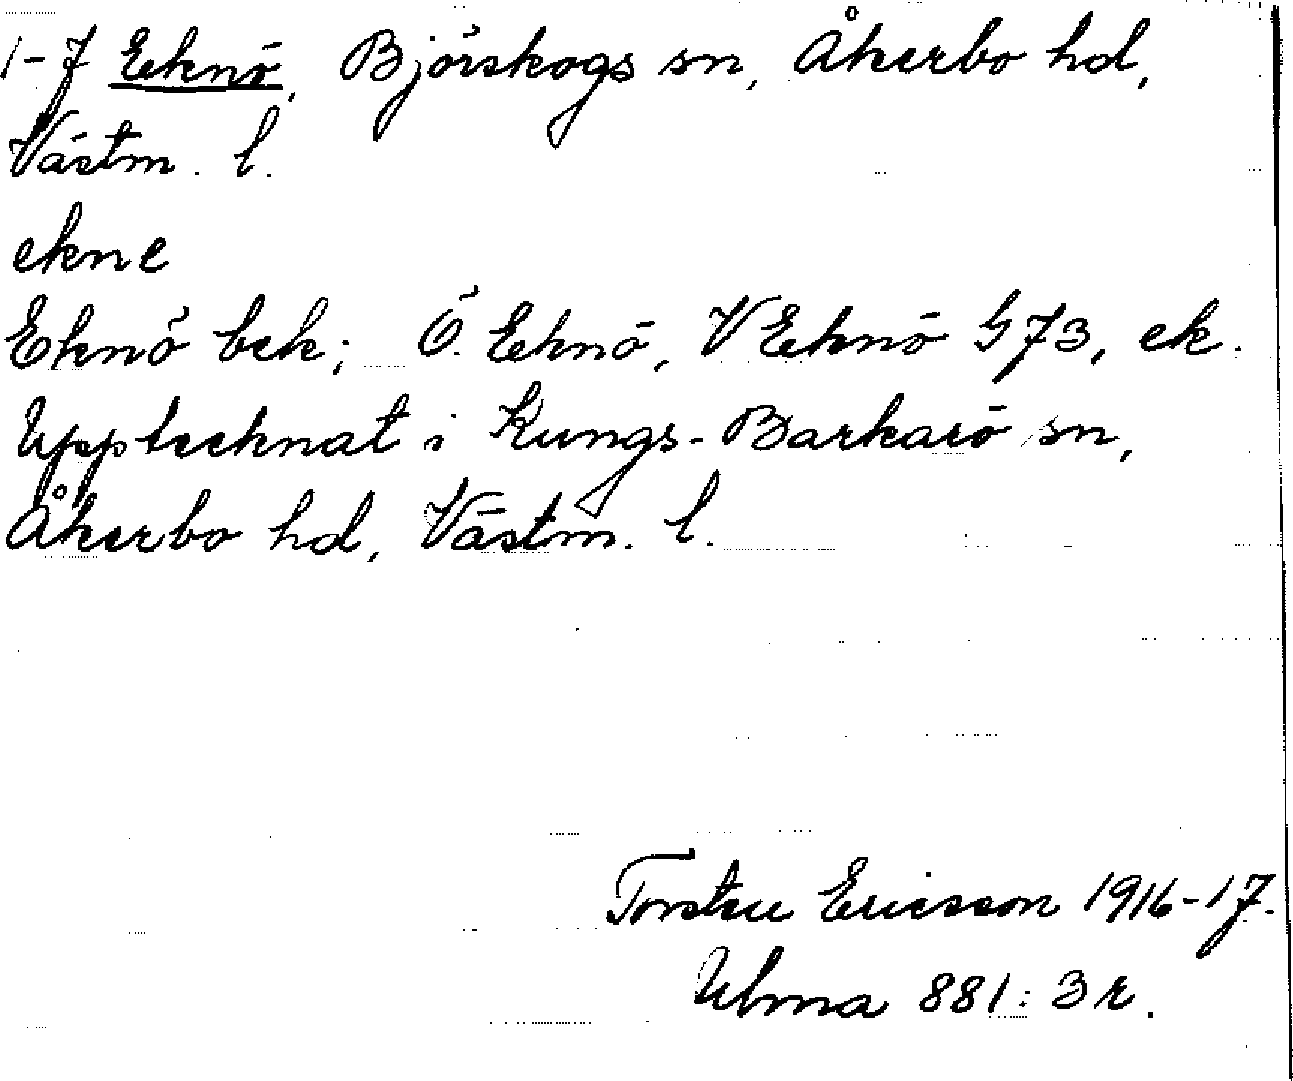 1-7 Eknö, Björskogs sn, Åkerbo hd,
Västm. l.
ekne
Eknö bek; Ö. Eknö, V Eknö G73, ek.
Upptecknat i Kungs-Barkarö sn,
Åkerbo hd, Västm. l.
Torsten Ericsson 1916-17.
Ulma 881:3 r.